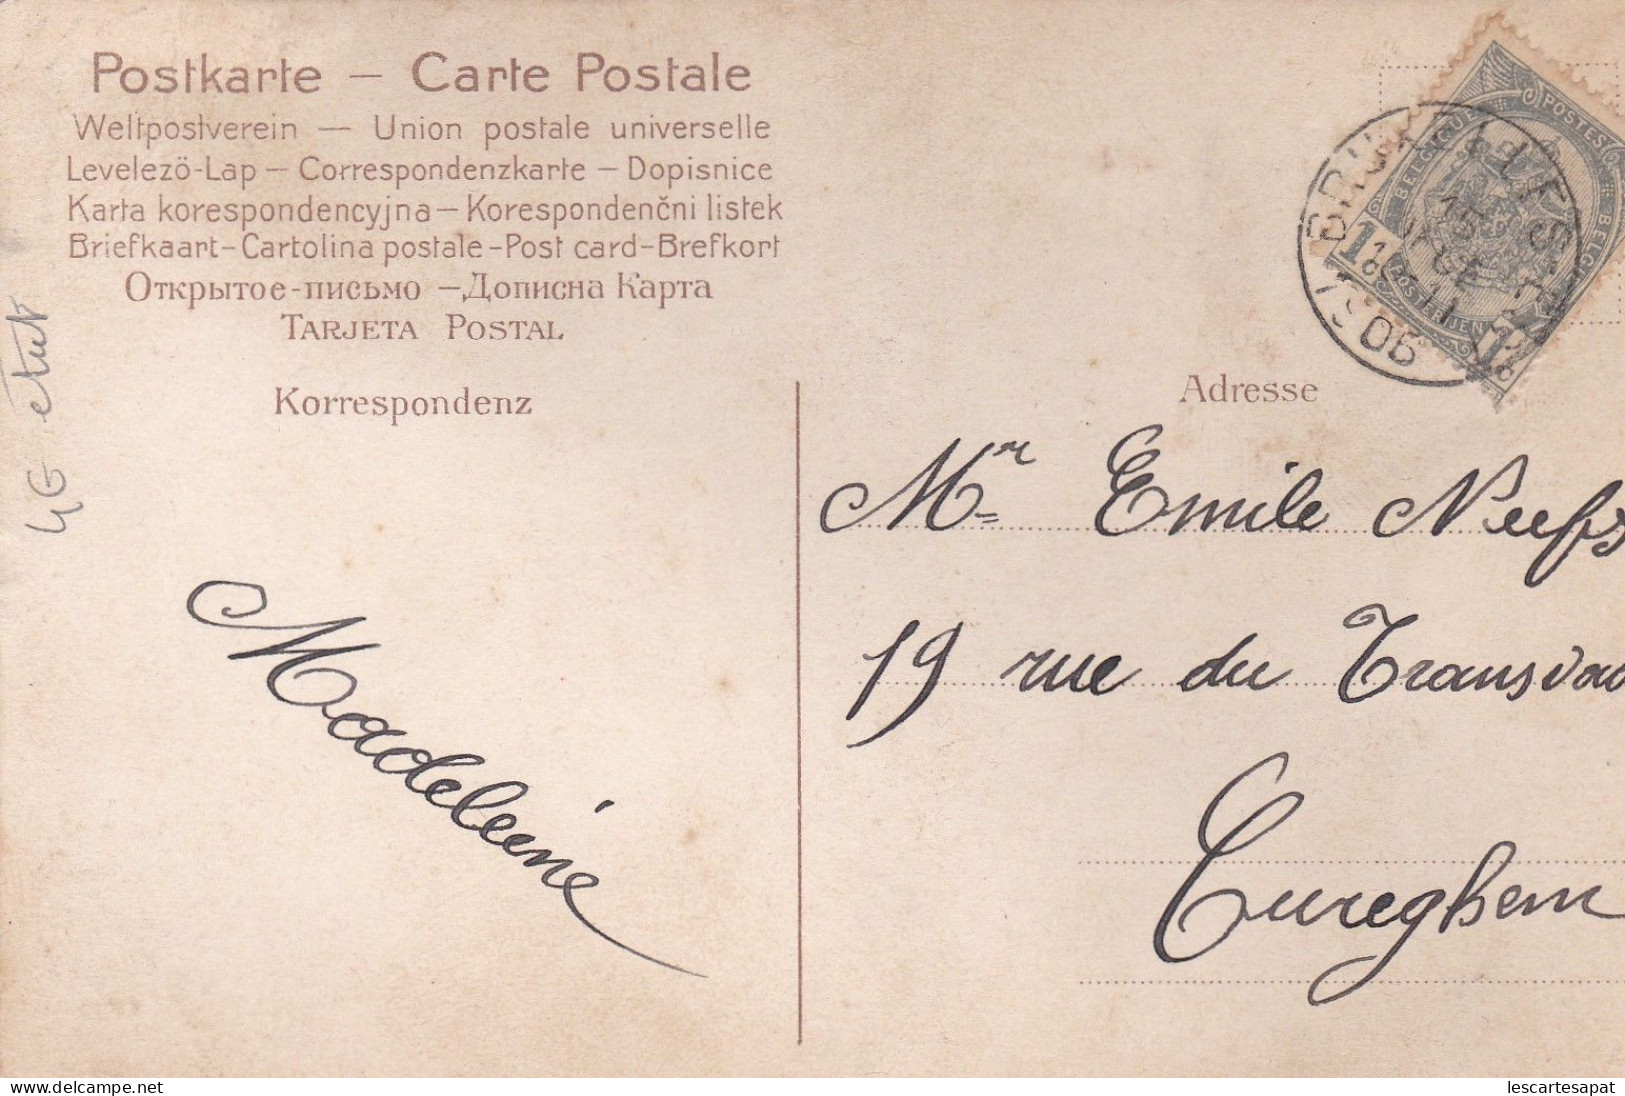 Postkarte – Carte Postale
Weltpostverein — Union postale universelle
Levelezö-Lap – Correspondenzkarte – Dopisnice
Karta korespondencyjna – Korespondenčni listek
Briefkaart - Cartolina postale - Post card - Brefkort
Открытое-письмо — Дописна Карта
TARJETA POSTAL
Korrespondenz
Adresse
BELGIQUE POSTES
POSTERIJEN BELGIË
1906
Mr Emile Neefs
19 rue du Transvaa
Cureghem
Madeleine
delcampe.net
lescartesapat